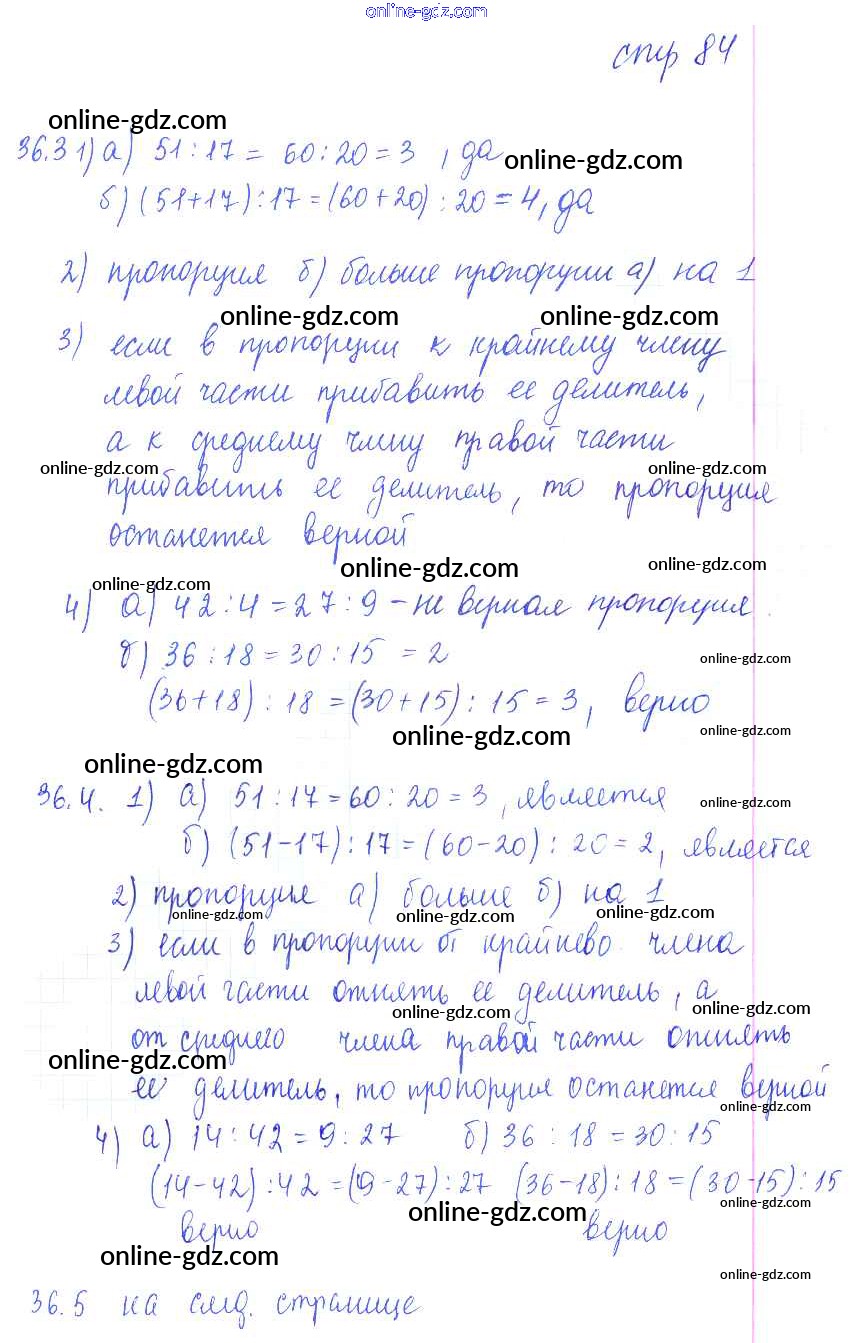 online-gdz.com
стр 84
online-gdz.com
36.3 1) а) 51 : 17 = 60 : 20 = 3 , да
online-gdz.com
б) (51+17) : 17 = (60+20) : 20 = 4, да
2) пропорция б) больше пропорции а) на 1
online-gdz.com online-gdz.com
3) если в пропорции к крайнему члену
левой части прибавить ее делитель,
а к среднему члену правой части
online-gdz.com online-gdz.com
прибавить ее делитель, то пропорция
останется верной
online-gdz.com online-gdz.com
online-gdz.com
4) а) 42 : 4 = 27 : 9 - не верная пропорция
б) 36 : 18 = 30 : 15 = 2
online-gdz.com
(36+18) : 18 = (30+15) : 15 = 3, верно
online-gdz.com online-gdz.com
online-gdz.com
36.4. 1) а) 51 : 17 = 60 : 20 = 3, является
online-gdz.com
б) (51-17) : 17 = (60-20) : 20 = 2, является
2) пропорция а) больше б) на 1
online-gdz.com online-gdz.com online-gdz.com
3) если в пропорции от крайнево члена
левой части отнять ее делитель, а
online-gdz.com online-gdz.com
от среднего члена правой части отнять
online-gdz.com
ее делитель, то пропорция останется верной
online-gdz.com
4) а) 14 : 42 = 9 : 27 б) 36 : 18 = 30 : 15
(14-42) : 42 = (9-27) : 27 (36-18) : 18 = (30-15) : 15
online-gdz.com online-gdz.com
верно верно
online-gdz.com
online-gdz.com
36.5 на след. странице